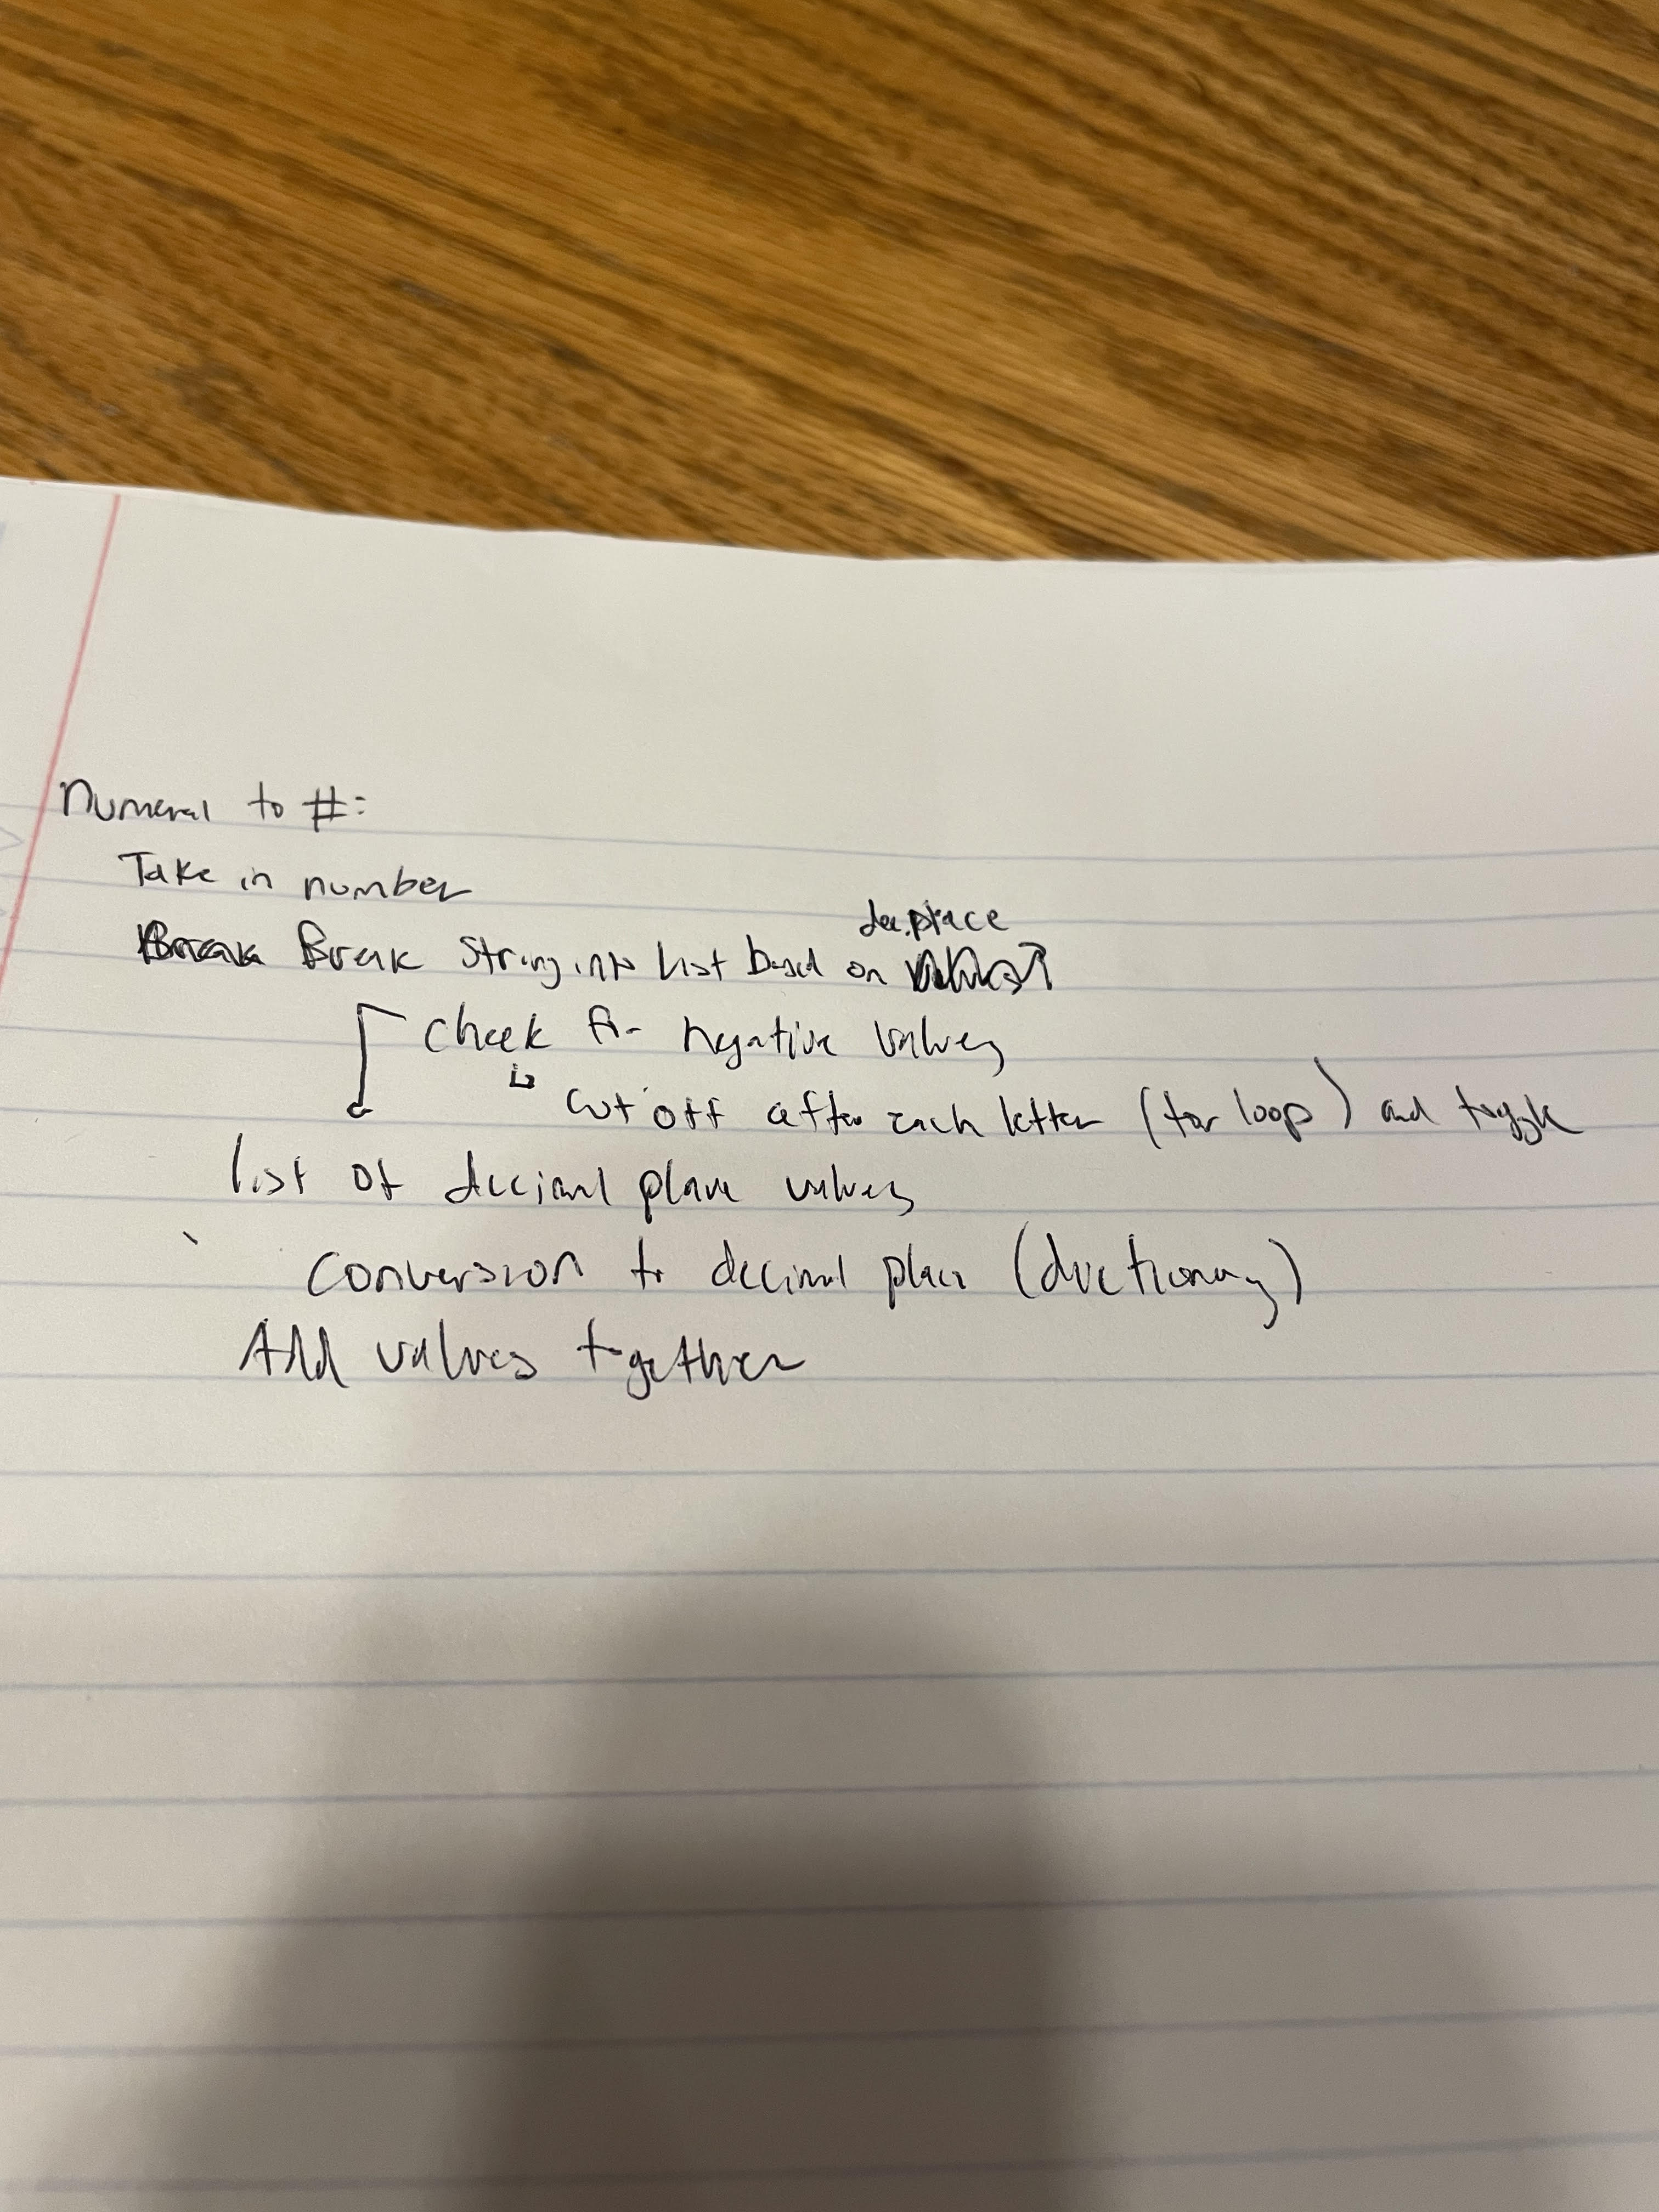 Numeral to #:
Take in number
dec. place
Break String into list based on
Check for negative values
cut off after each letter (for loop) and toggle
list of decimal place values
conversion to decimal place (dictionary)
Add values together